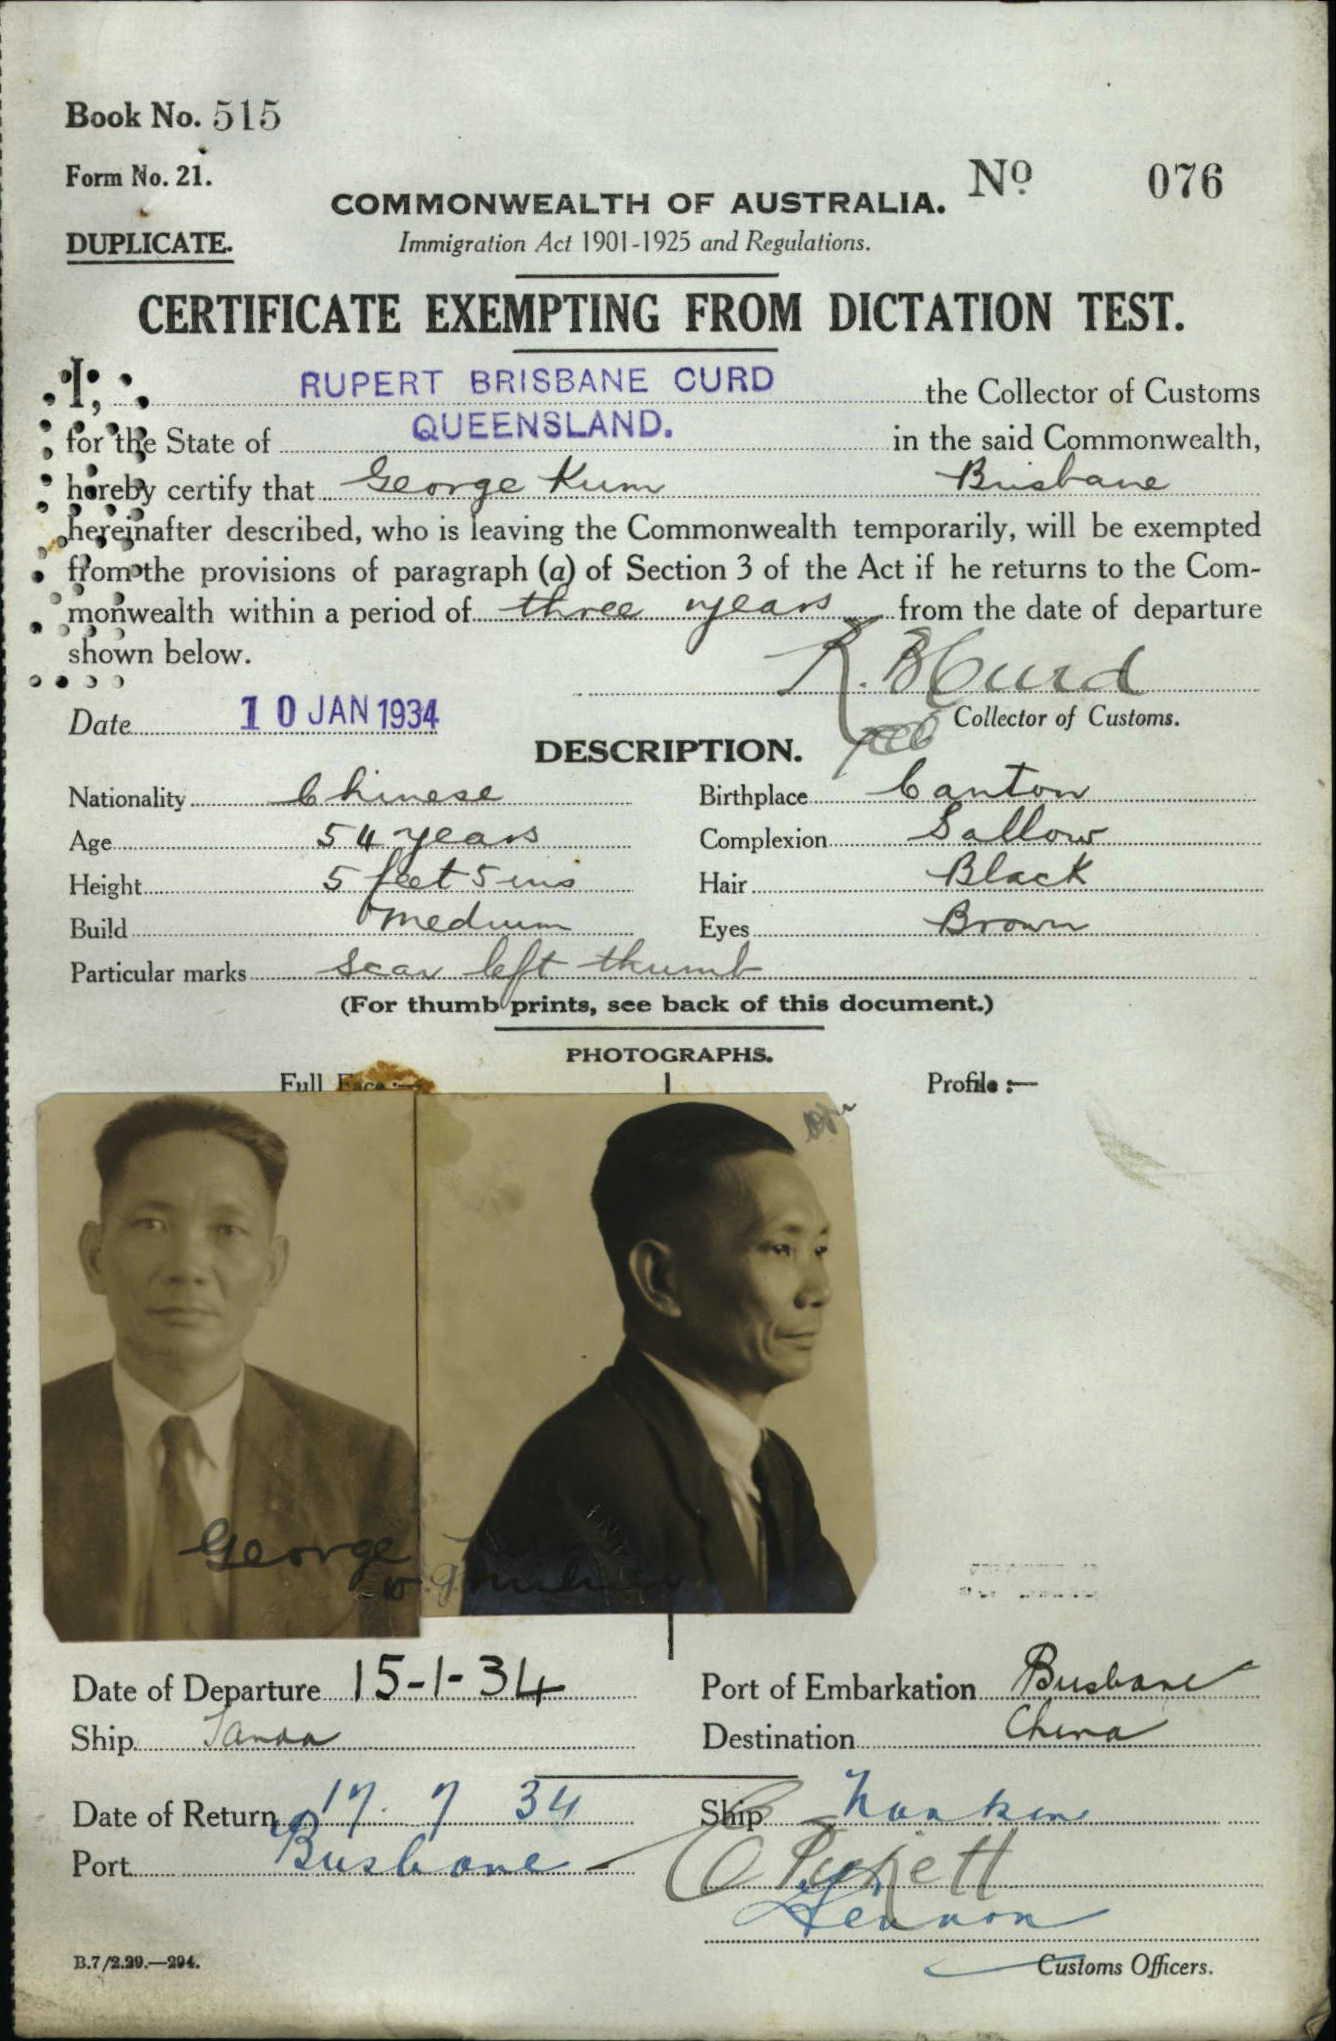 Book No. 515
Form No. 21.
No 076
COMMONWEALTH OF AUSTRALIA.
DUPLICATE.
Immigration Act 1901-1925 and Regulations.
CERTIFICATE EXEMPTING FROM DICTATION TEST.
I, RUPERT BRISBANE CURD the Collector of Customs
for the State of QUEENSLAND. in the said Commonwealth,
hereby certify that George Kum Brisbane
hereinafter described, who is leaving the Commonwealth temporarily, will be exempted
from the provisions of paragraph (a) of Section 3 of the Act if he returns to the Com-
monwealth within a period of three years from the date of departure
shown below.
R. B Curd
Date 10 JAN 1934 Collector of Customs.
DESCRIPTION.
Nationality Chinese Birthplace Canton
Age 54 years Complexion Sallow
Height 5 feet 5 ins Hair Black
Build Medium Eyes Brown
Particular marks Scar left thumb
(For thumb prints, see back of this document.)
PHOTOGRAPHS.
Full Face :— Profile :—
George
Date of Departure 15-1-34 Port of Embarkation Brisbane
Ship Tanda Destination China
Date of Return 17. 7 34 Ship Nankin
Port Brisbane
Lennon
B.7/2.29.—294. Customs Officers.